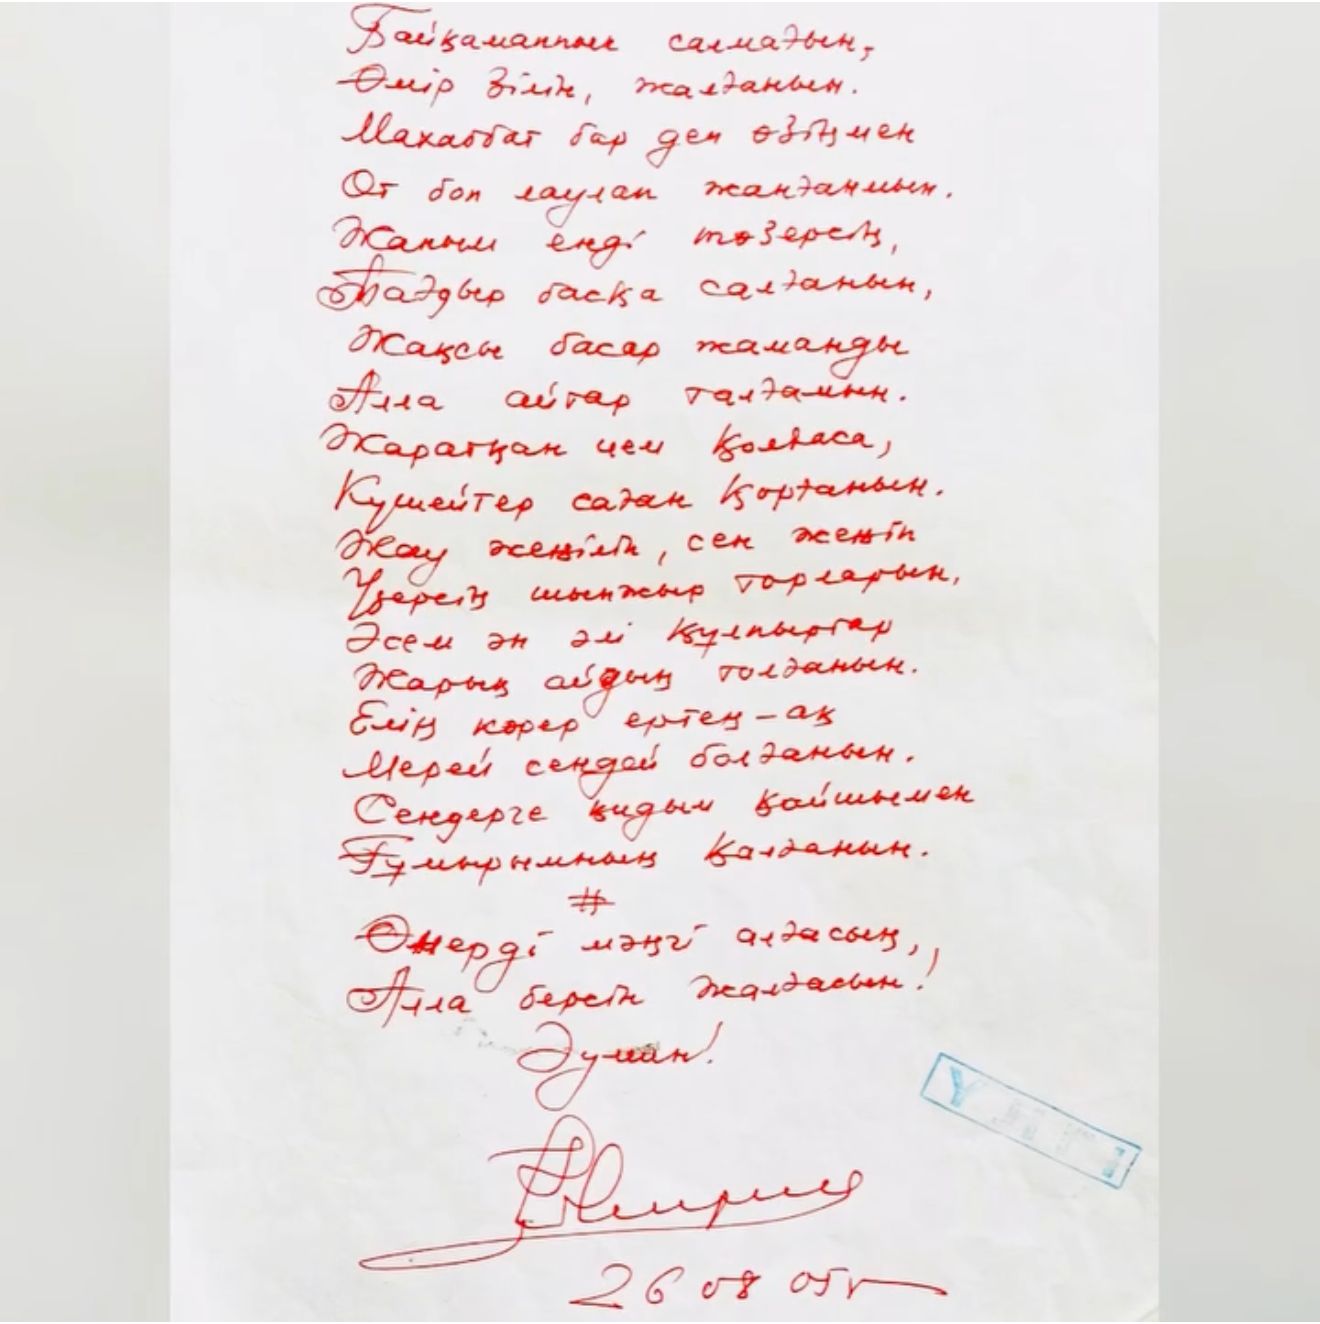 Байқамаппын салмағын,
Өмір зілін, жалғанын.
Махаббат бар деп өзіңмен
От боп лаулап жанғанмын.
Жаным енді төзерсің,
Тағдыр басқа салғанын,
Жақсы басар жаманды
Алла айтар талғамын.
Жаратқан ием қолдаса,
Күшейтер саған қорғанын.
Жау жеңіліп, сен жеңіп
Үзерсің шынжыр торларын,
Әсем ән әлі құлпыртар
Жарық айдың толғанын.
Елің көрер ертең-ақ
Мерей сендей болғанын.
Сендерге қидым қайшымен
Ғұмырымның қалғанын.
#
Өнерді мәңгі алғасың,
Алла берсін жалғасын!
Әумин!
26 08 05г
ҮЛГІ